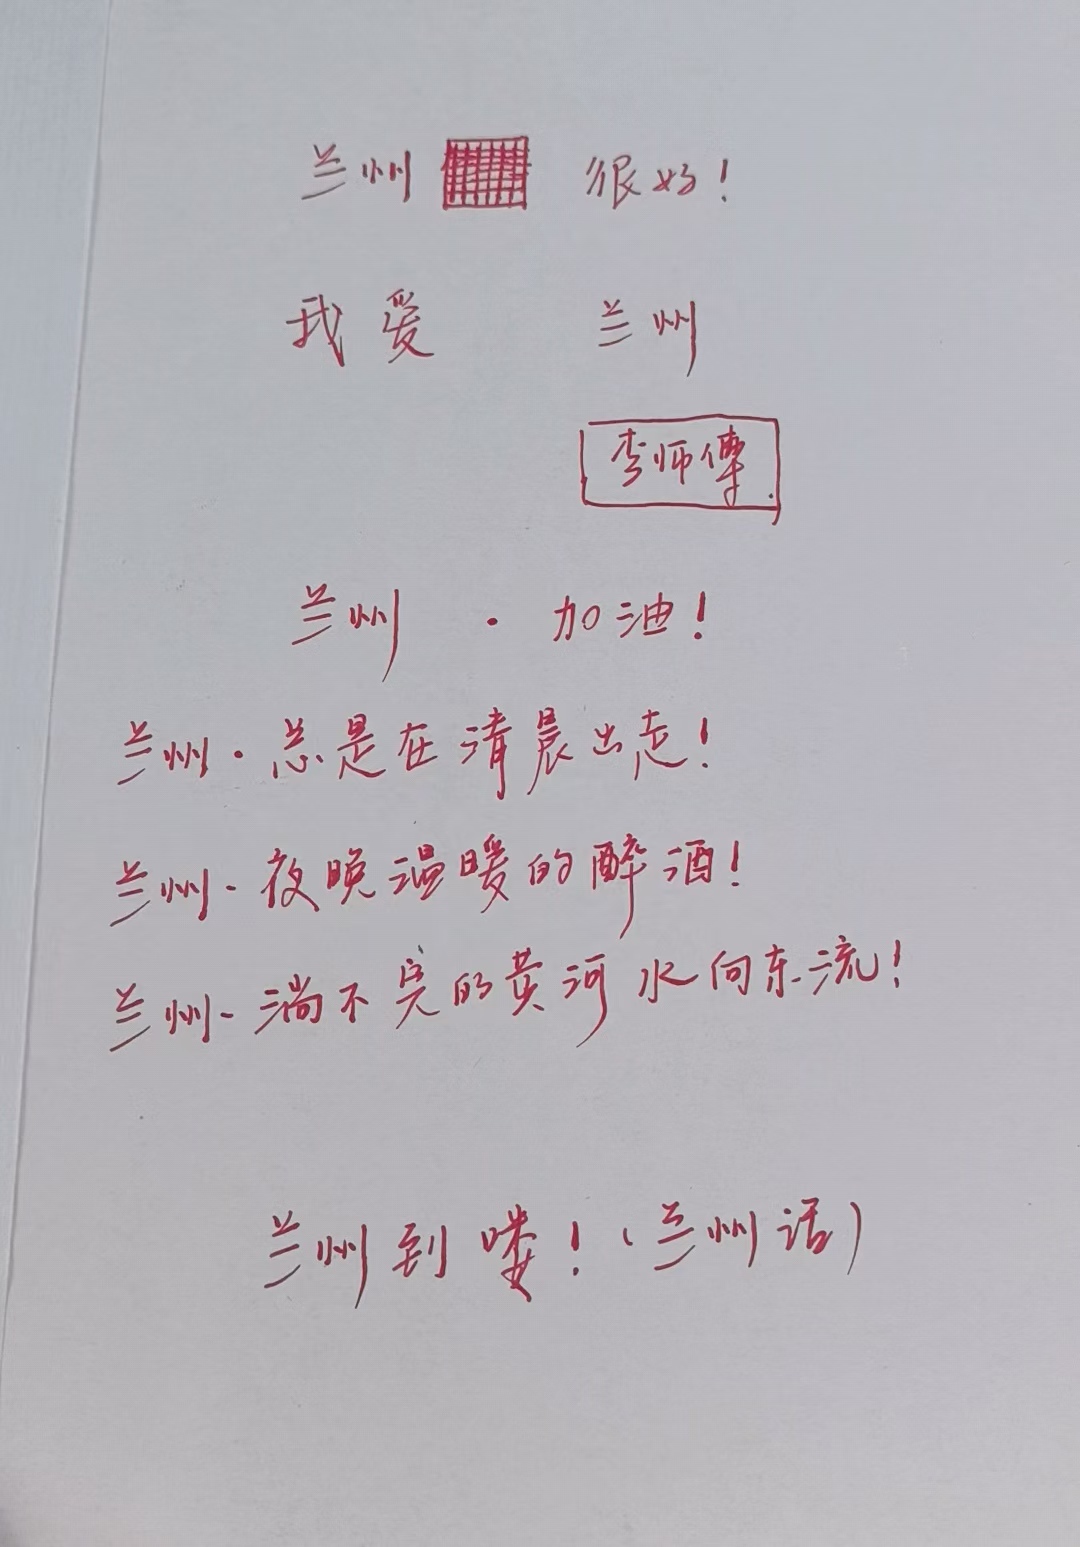 兰州 很好!
我爱 兰州
李师傅
兰州 · 加油!
兰州·总是在清晨出走!
兰州·夜晚温暖的醉酒!
兰州-淌不完的黄河水向东流!
兰州到喽!(兰州话)